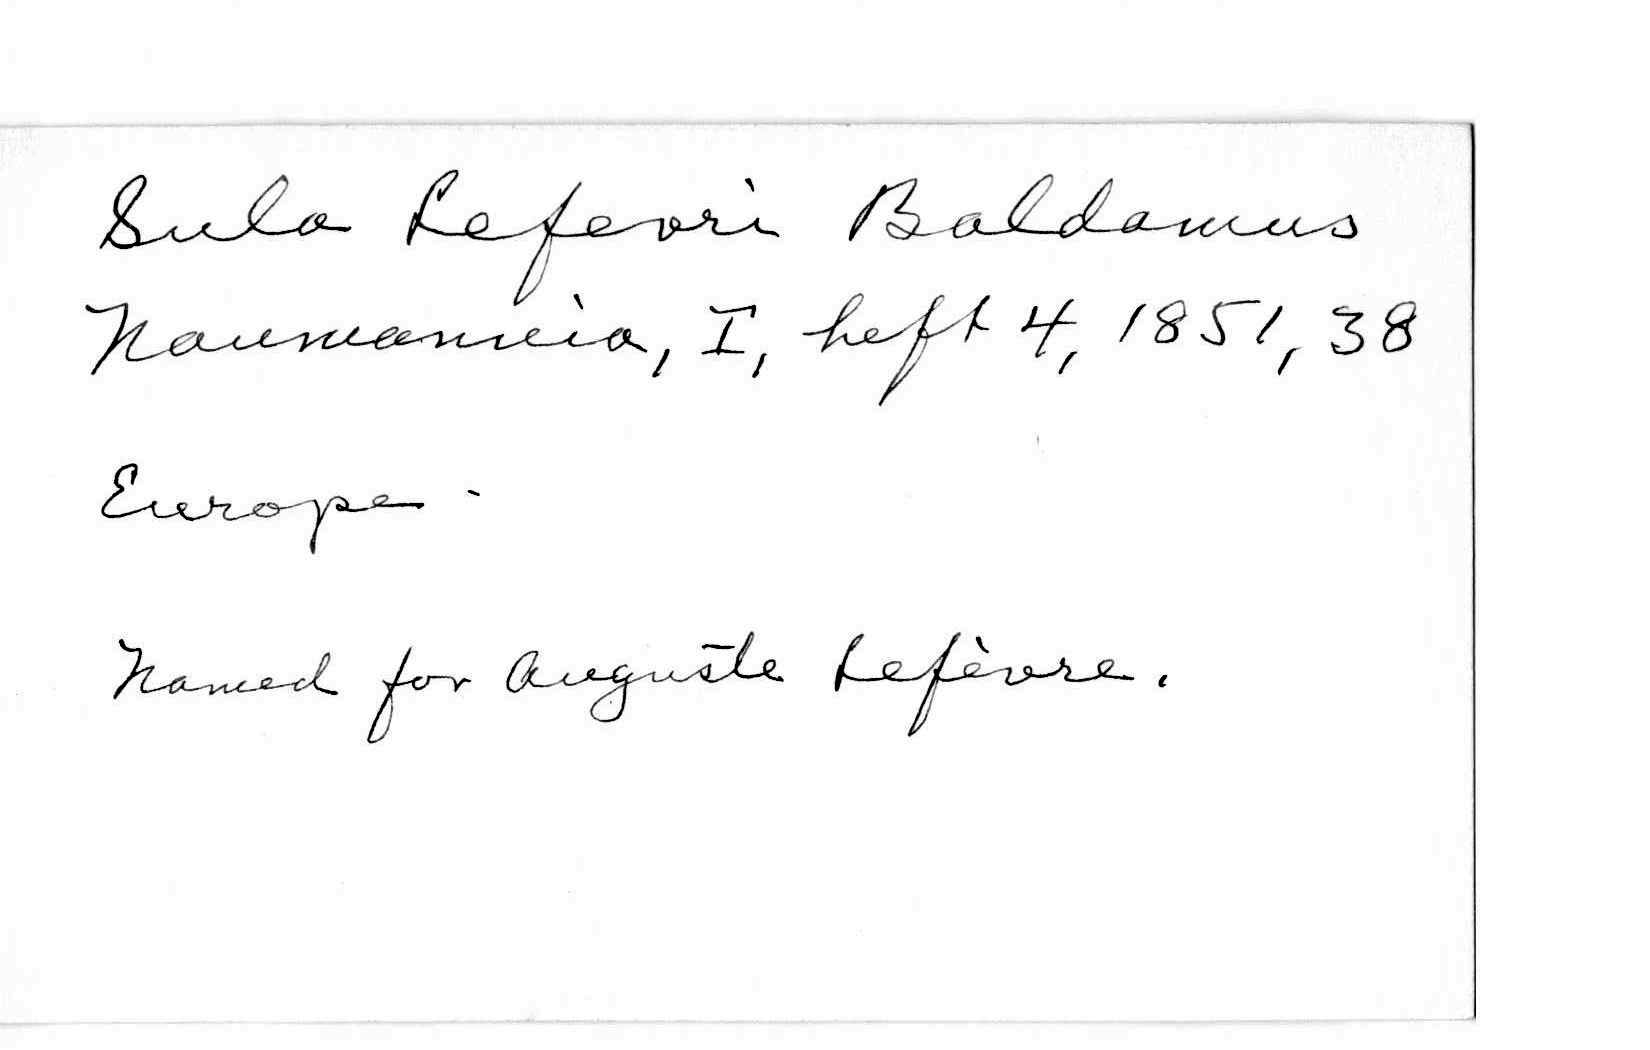 Sula Lefevri Baldamus
Naumannia, I, heft 4, 1851, 38
Europe -
Named for Auguste Lefèvre.